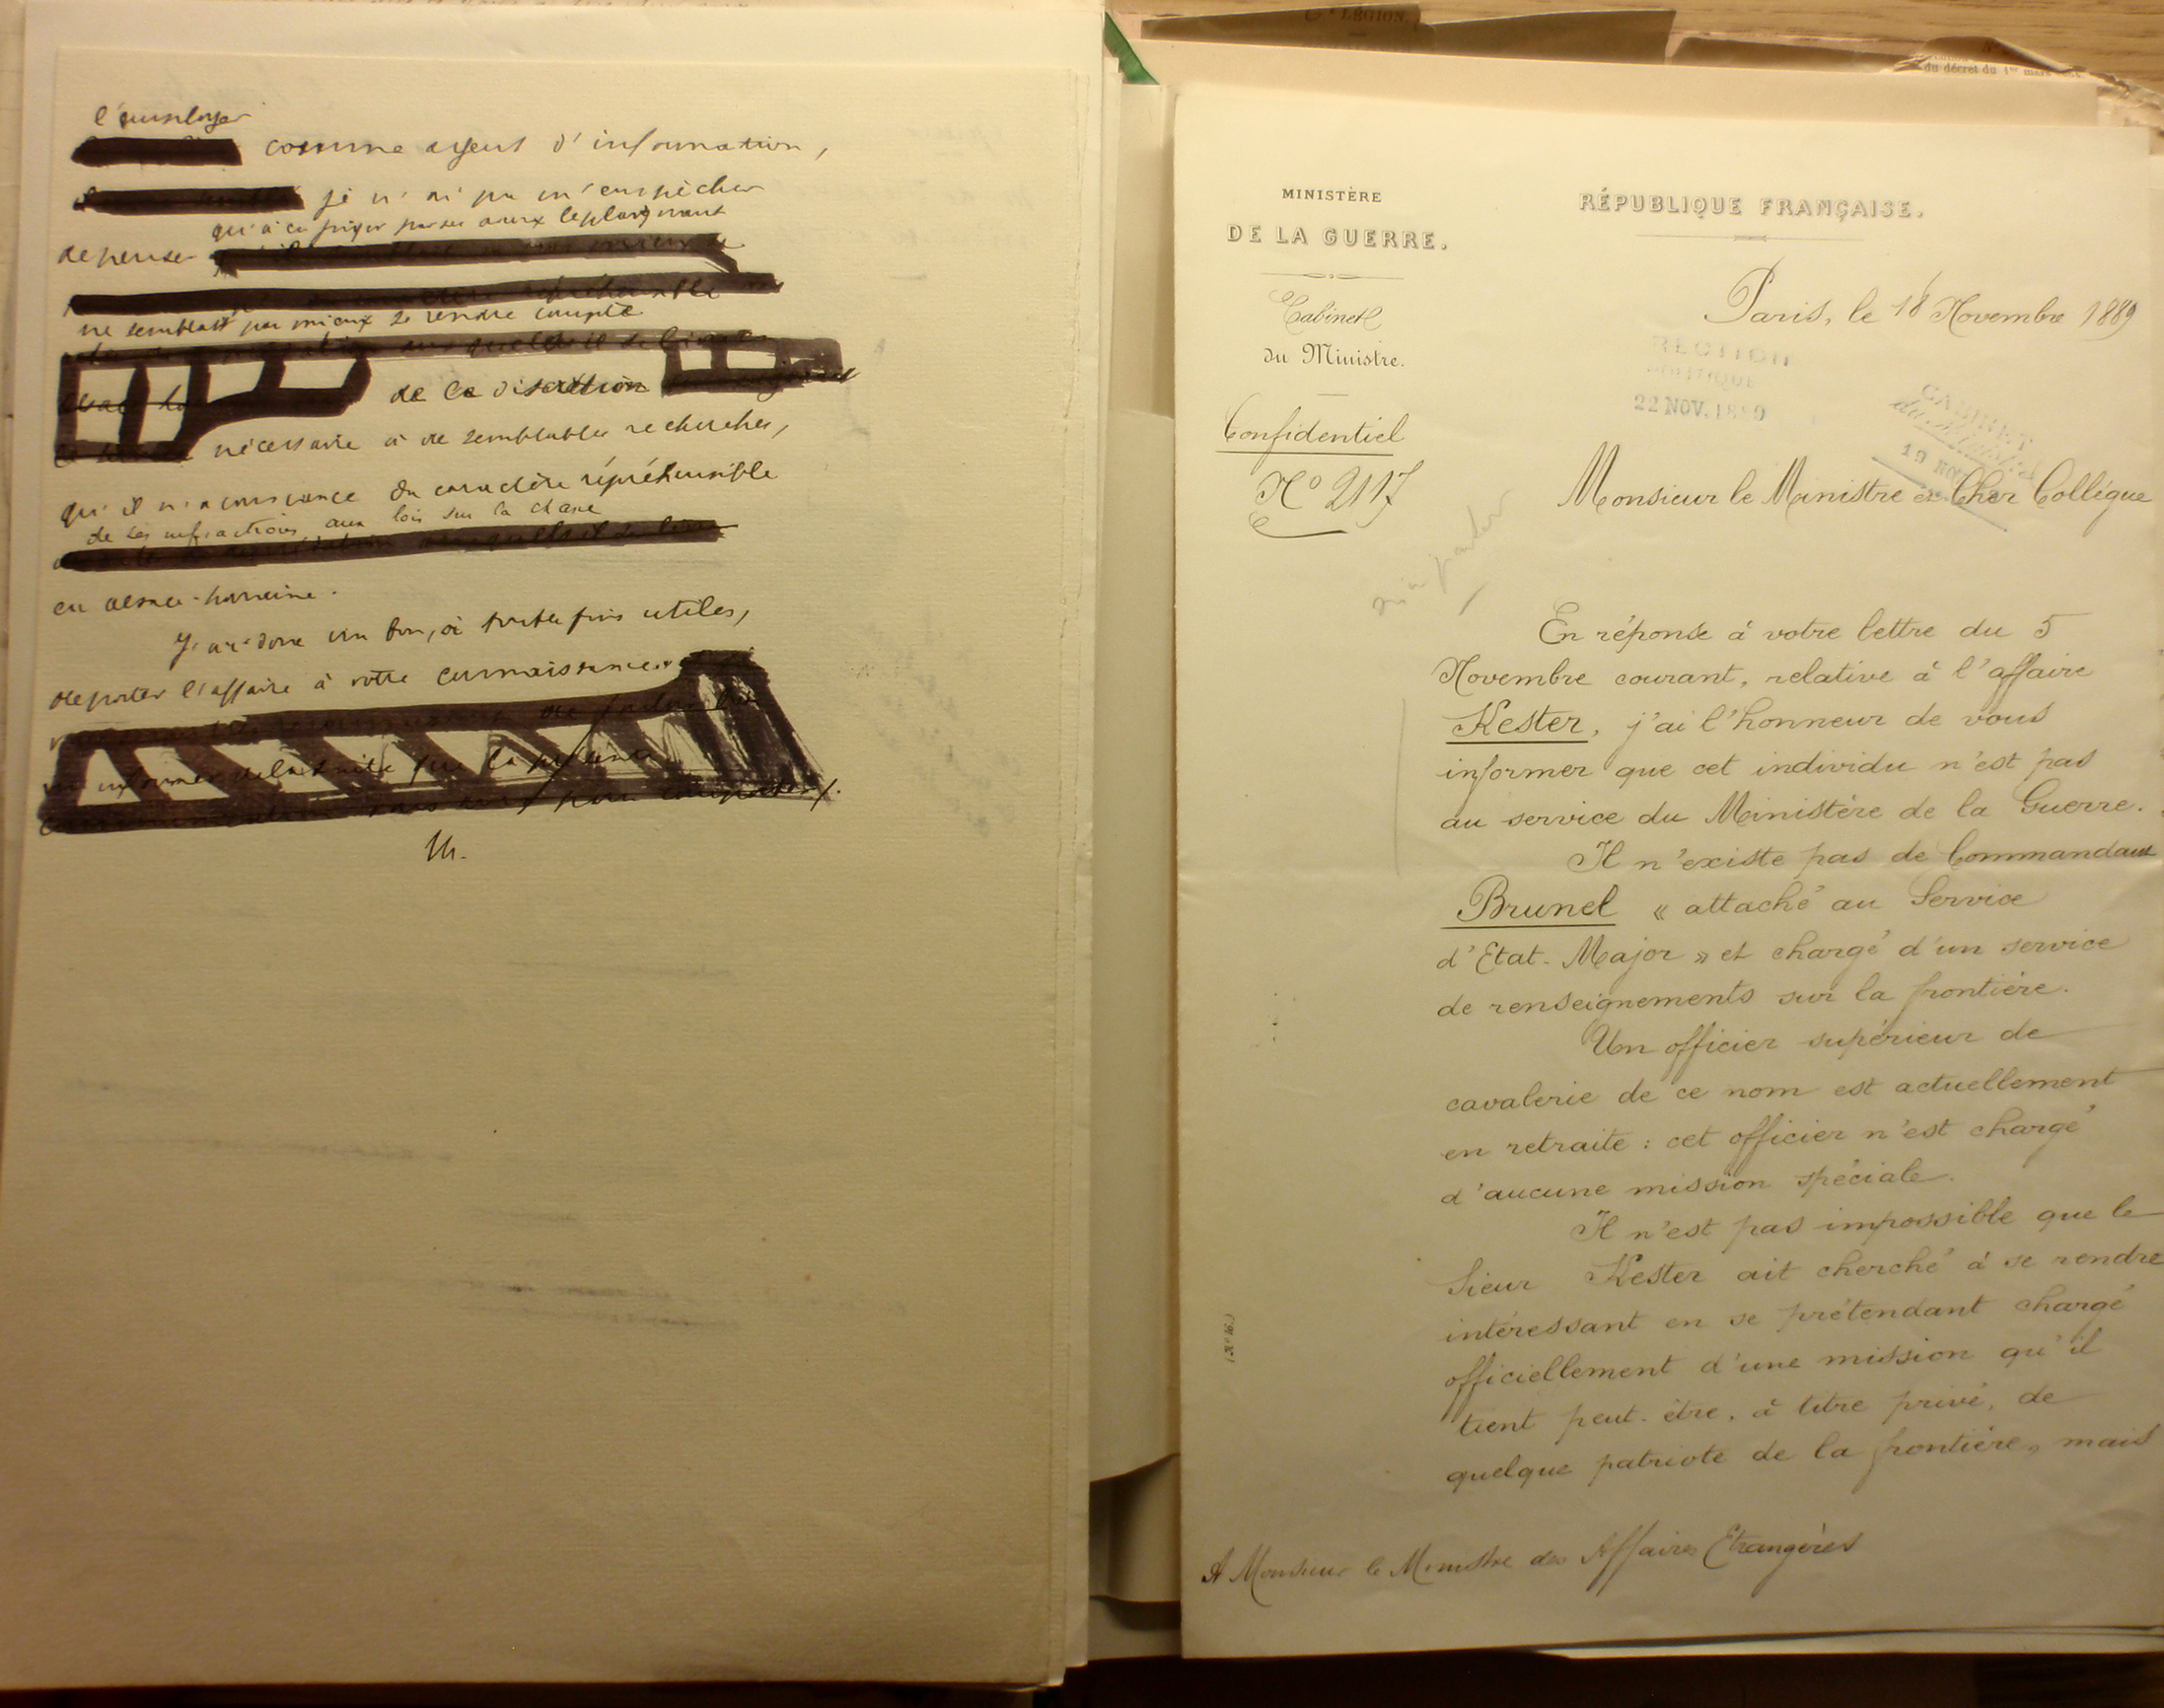 l'employer
comme agent d'information,
je n'ai pu m'empêcher
de penser qu'à en juger par ses aveux le plaignant
ne semblait pas mieux se rendre compte
de la discrétion
nécessaire à de semblables recherches,
qu'il n'a conscience du caractère répréhensible
de ses infractions aux lois sur la chasse
en Alsace-Lorraine.
J'ai donc cru bon, à toutes fins utiles,
de porter l'affaire à votre connaissance
6e LÉGION.
du décret du 1er mars
MINISTÈRE
DE LA GUERRE.
Cabinet
du Ministre.
Confidentiel
No 2117
RÉPUBLIQUE FRANÇAISE.
Paris, le 18 Novembre 1889
22 NOV. 1889
CABINET
du Ministre
19 NOV
Monsieur le Ministre et Cher Collègue
En réponse à votre lettre du 5
Novembre courant, relative à l'affaire
Kester, j'ai l'honneur de vous
informer que cet individu n'est pas
au service du Ministère de la Guerre.
Il n'existe pas de Commandant
Brunel « attaché au Service
d'Etat-Major » et chargé d'un service
de renseignements sur la frontière.
Un officier supérieur de
cavalerie de ce nom est actuellement
en retraite : cet officier n'est chargé
d'aucune mission spéciale.
Il n'est pas impossible que le
Sieur Kester ait cherché à se rendre
intéressant en se prétendant chargé
officiellement d'une mission qu'il
tient peut-être, à titre privé, de
quelque patriote de la frontière, mais
A Monsieur le Ministre des Affaires Etrangères